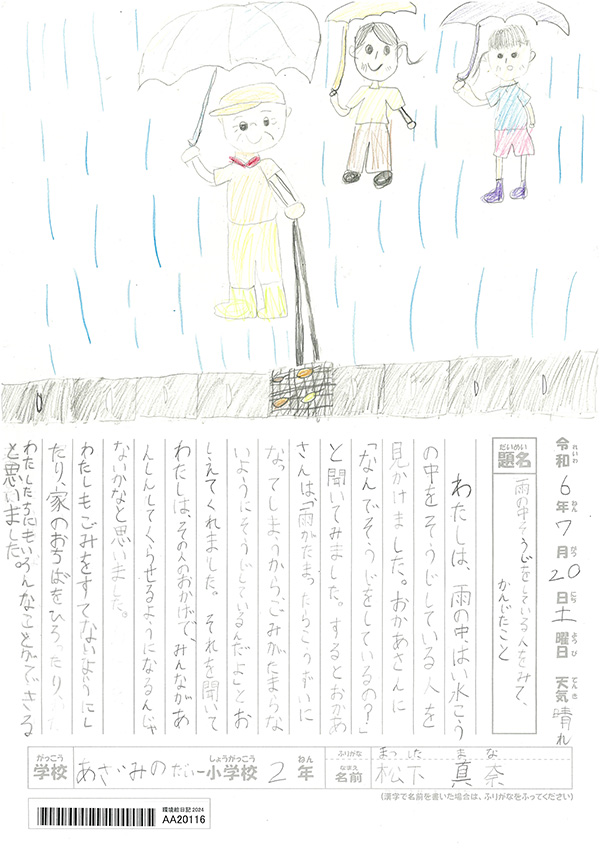 令和6年7月20日土曜日 天気晴れ
れいわ ねん がつ にち ようび てんき
だいめい
題名
雨の中そうじをしている人をみて、
かんじたこと
わたしは、雨の中、はい水こう
の中をそうじしている人を
見かけました。おかあさんに
「なんでそうじをしているの？」
と聞いてみました。するとおかあ
さんは、「雨がたまったらこうずいに
なってしまうから、ごみがたまらな
いようにそうじしているんだよ」とお
しえてくれました。それを聞いて
わたしは、その人のおかげで、みんながあ
んしんしてくらせるようになるんじゃ
ないかなと思いました。
わたしもごみをすてないようにし
たり、家のおちばをひろったり、
わたしたちにもいろんなことができる
と思いました。
がっこう
学校
あざみの
だいー
しょうがっこう
小学校
2年
ねん
ふりがな
まつした まな
なまえ
名前
松下 真奈
(漢字で名前を書いた場合は、ふりがなをふってください)
環境絵日記2024
AA20116